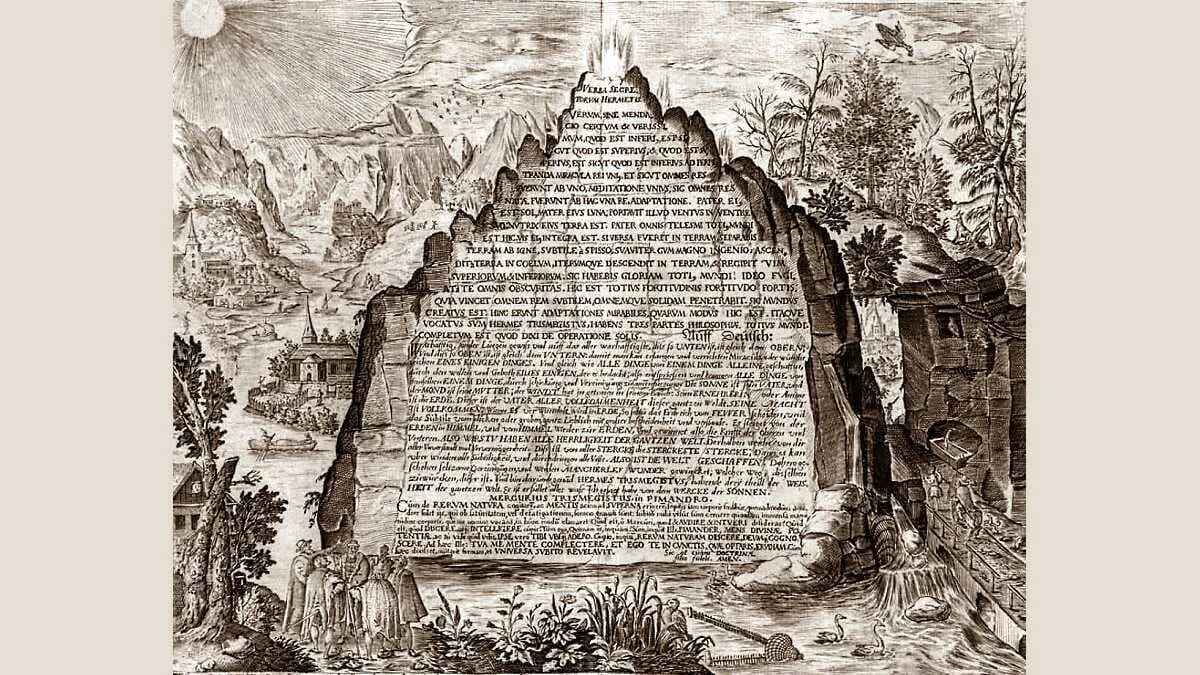 VERBA SECRE
TORUM HERMETIS
VERUM, SINE MENDA
CIO CERTUM & VERISSI
MUM, QUOD EST INFERI, EST SI
CUT QUOD EST SUPERIUS, & QUOD EST S
PERIUS, EST SICUT QUOD EST INFERIUS AD PERPE
TRANDA MIRACULA REI UNI, ET SICUT OMNES RES
FUERUNT AB UNO, MEDITATIONE UNIUS, SIC OMNES RES
NATÆ FUERUNT AB HAC UNA RE, ADAPTATIONE. PATER EI
EST SOL, MATER EIUS LUNA; PORTAVIT ILLUD VENTUS IN VENTRE
NUTRIX EIUS TERRA EST. PATER OMNIS TELESMI TOTI, MUNDI
EST HIC VIS EI, INTEGRA EST. SI VERSA FUERIT IN TERRAM, SEPARABIS
TERRAM AB IGNE, SUBTILE à SPISSO, SUAVITER CUM MAGNO INGENIO: ASCEN,
DIT à TERRA IN COELUM, ITERUMQUE DESCENDIT IN TERRAM, & RECIPIT VIM
SUPERIORUM & INFERIORUM: SIC HABEBIS GLORIAM TOTI, MUNDI! IDEO FUGI,
AT à TE OMNIS OBSCURITAS. HIC EST TOTIUS FORTITUDINIS FORTITUDO FORTIS,
QUIA VINCET OMNEM REM SUBTILEM, OMNEMQUE SOLIDAM PENETRABIT. SIC MUNDUS
CREATUS EST. HINC ERUNT ADAPTATIONES MIRABILES, QUARUM MODUS HIC EST. ITAQUE
VOCATUS SUM HERMES TRISMEGISTUS, HABENS TRES PARTES PHILOSOPHIÆ TOTIUS MUNDI.
COMPLETUM EST QUOD DIXI DE OPERATIONE SOLIS. Auff Deutsch:
sonder Lügen gewiß und auff das aller warhafftigste, diß so UNTEN ist, ist gleich dem OBERN:
Und diß so OBEN ist, ist gleich dem UNTERN: damit man kan erlangen und verrichten Miracula, oder wunder
zeichen EINES EINIGEN DINGES. Und gleich wie ALLE DINGE von EINEM DINGE ALLEINE, geschaffen,
durch den willen und Geboth EINES EINIGEN, der es bedacht: also entspriessen und kommen ALLE DINGE von
demselbigen EINEM DINGE, durch schickung und Vereinigung zusammen. Die SONNE ist sein VATER, und
der MOND ist seine MUTTER, der WINDT hat in getragen in seinem bauch: Seine ERNEHRERIN oder Amme
ist die ERDE. Dieser ist der VATER ALLER VOLLKOMMENHEIT dieser gantzen Weldt. SEINE MACHT
IST VOLLKOMMEN, Wenn es verwandelt wird in ERDE, So soltu das Erdreich vom FEWER scheiden, und
das Subtile vom dicken oder groben, gantz Lieblich mit grosser bescheidenheit und verstande. Es steiget von der
ERDEN in HIMMEL, und von HIMMEL Wieder zur ERDEN, und gewinnet also die Krafft der obern und
Untern. ALSO WIRSTU HABEN ALLE HERRLIGKEIT DER GANTZEN WELT. Derhalben weiche von dir
aller Unverstand und Unvermögenheit. Diß ist von aller STERCKE die STERCKESTE STERCKE, Dann es kan
uberwinden alle Subtiligkeit, und durchdringen alle Veste. ALSO IST DIE WELT GESCHAFFEN. Daher ge-
schehen seltzame Vereinigungen, und werden MANCHERLEY WUNDER gewircket, welcher Weg, dieselben
zu wircken, dieser ist. Und bin darumb genand HERMES TRISMEGISTUS, habende drey theill der WEIS,
HEIT der gantzen Welt. Es ist erfüllet alles was ich gesagt habe von dem WERCKE der SONNEN.
MERCURIUS TRISMEGISTUS, in PIMANDRO.
Cum de RERUM NATURA cogitare, ac MENTIS aciem ad SUPERNA erigerem, sopitis iam corporis sensibus,
TENTIÆ, INTELLIGERE IPSE vero TIBI ubique ADERO. Cupio, inquam, RERUM NATURAM DISCERE, DEUMQ COGNO,
SCERE. Ad hæc ille: TUA ME MENTE COMPLECTERE, ET EGO TE IN CUNCTIS, QUÆ OPTARIS, ERUDIAM. Cum
hæc dixisset, mutavit formam, et UNIVERSA SUBITO REVELAVIT.
AMEN.